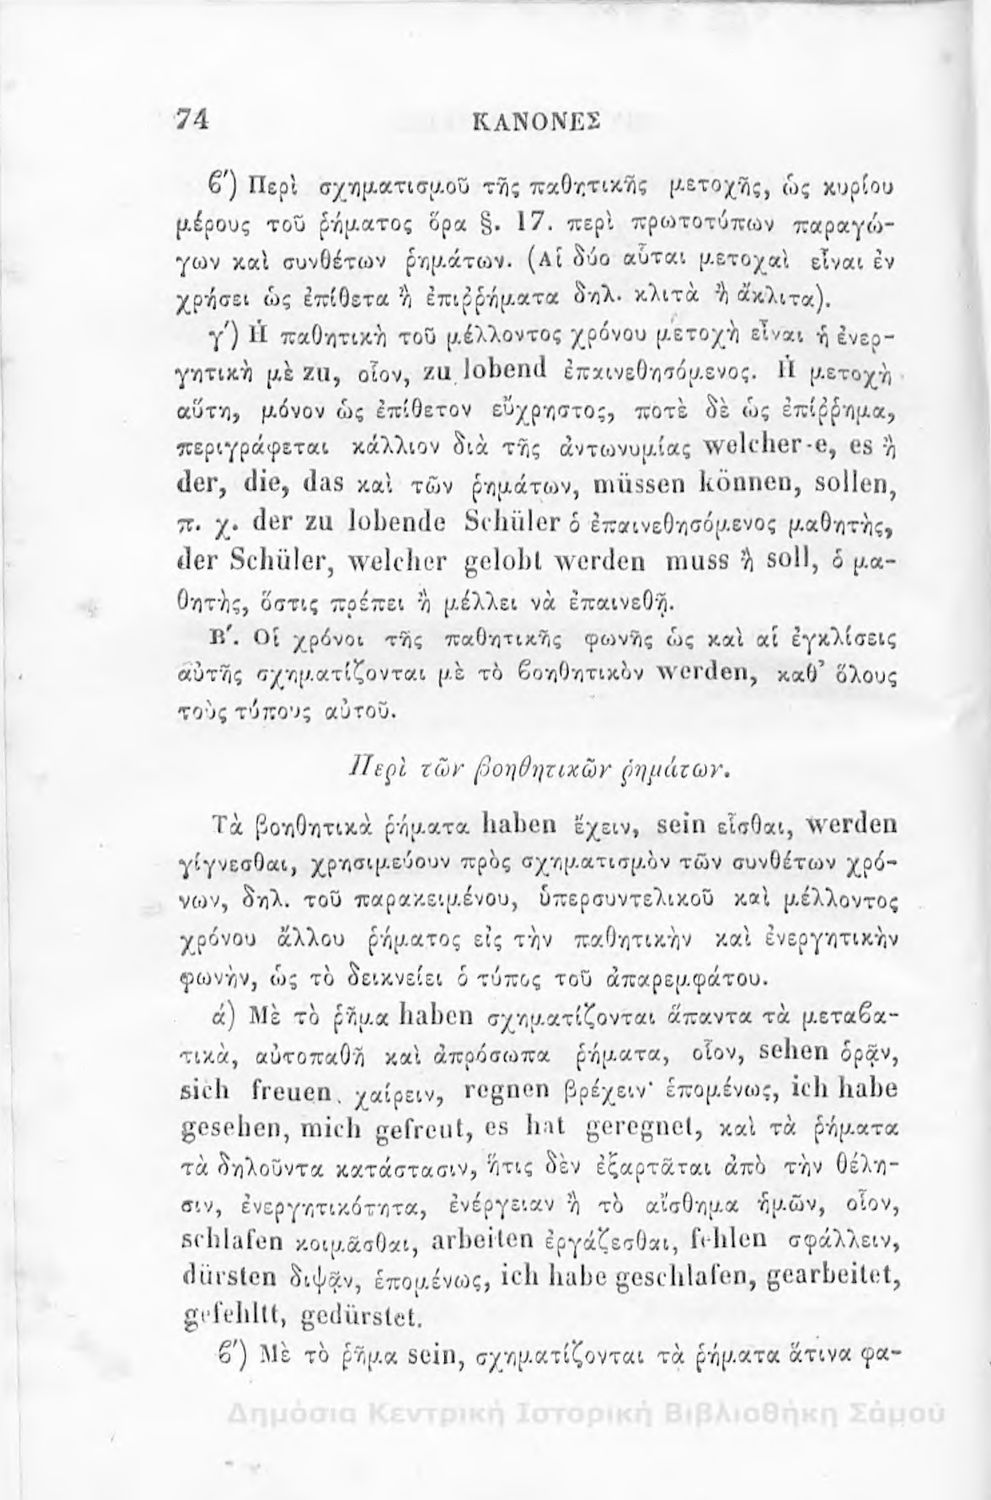 74 ΚΑΝΟΝΕΣ
ϐ′) Περὶ σχηματισμοῦ τῆς παθητικῆς μετοχῆς, ὡς κυρίου
μέρους τοῦ ῥήματος ὅρα §. 17. περὶ πρωτοτύπων παραγώ-
γων καὶ συνθέτων ῥημάτων. (Αἱ δύο αὗται μετοχαὶ εἶναι ἐν
χρήσει ὡς ἐπίθετα ἢ ἐπιῤῥήματα δηλ. κλιτὰ ἢ ἄκλιτα).
γ′) Ἡ παθητικὴ τοῦ μέλλοντος χρόνου μετοχὴ εἶναι ἡ ἐνερ-
γητικὴ μὲ zu, οἷον, zu lobend ἐπαινεθησόμενος. Ἡ μετοχὴ
αὕτη, μόνον ὡς ἐπίθετον εὔχρηστος, ποτὲ δὲ ὡς ἐπίῤῥημα,
περιγράφεται κάλλιον διὰ τῆς ἀντωνυμίας welcher-e, es ἢ
der, die, das καὶ τῶν ῥημάτων, müssen können, sollen,
π. χ. der zu lobende Schüler ὁ ἐπαινεθησόμενος μαθητὴς,
der Schüler, welcher gelobt werden muss ἢ soll, ὁ μα-
θητὴς, ὅστις πρέπει ἢ μέλλει νὰ ἐπαινεθῇ.
Β′. Οἱ χρόνοι τῆς παθητικῆς φωνῆς ὡς καὶ αἱ ἐγκλίσεις
αὐτῆς σχηματίζονται μὲ τὸ ϐοηθητικὸν werden, καθ’ ὅλους
τοὺς τύπους αὐτοῦ.
Περὶ τῶν βοηθητικῶν ῥημάτων.
Τὰ βοηθητικὰ ῥήματα haben ἔχειν, sein εἶσθαι, werden
γίγνεσθαι, χρησιμεύουν πρὸς σχηματισμὸν τῶν συνθέτων χρό-
νων, δηλ. τοῦ παρακειμένου, ὑπερσυντελικοῦ καὶ μέλλοντος
χρόνου ἄλλου ῥήματος εἰς τὴν παθητικὴν καὶ ἐνεργητικὴν
φωνὴν, ὡς τὸ δεικνείει ὁ τύπος τοῦ ἀπαρεμφάτου.
ά) Μὲ τὸ ῥῆμα haben σχηματίζονται ἅπαντα τὰ μεταϐα-
τικὰ, αὐτοπαθῆ καὶ ἀπρόσωπα ῥήματα, οἷον, sehen ὁρᾷν,
sich freuen, χαίρειν, regnen βρέχειν· ἑπομένως, ich habe
gesehen, mich gefreut, es hat geregnet, καὶ τὰ ῥήματα
τὰ δηλοῦντα κατάστασιν, ἥτις δὲν ἐξαρτᾶται ἀπὸ τὴν θέλη-
σιν, ἐνεργητικότητα, ἐνέργειαν ἢ τὸ αἴσθημα ἡμῶν, οἷον,
schlafen κοιμᾶσθαι, arbeiten ἐργάζεσθαι, fehlen σφάλλειν,
dürsten διψᾷν, ἑπομένως, ich habe geschlafen, gearbeitet,
gefehltt, gedürstet.
ϐ′) Μὲ τὸ ῥῆμα sein, σχηματίζονται τὰ ῥήματα ἅτινα φα-
Δημόσια Κεντρική Ιστορική Βιβλιοθήκη Σάμου